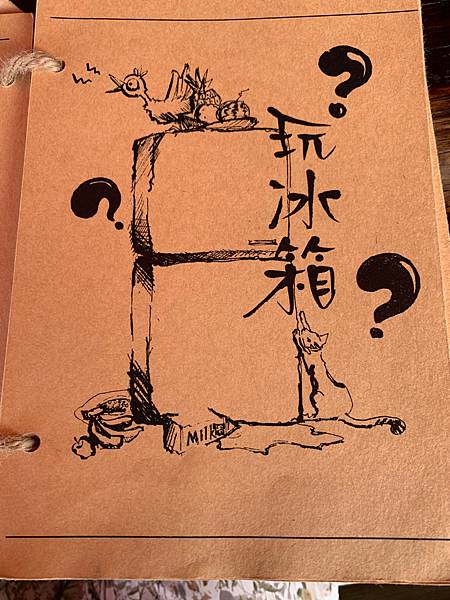 玩冰箱
Milk